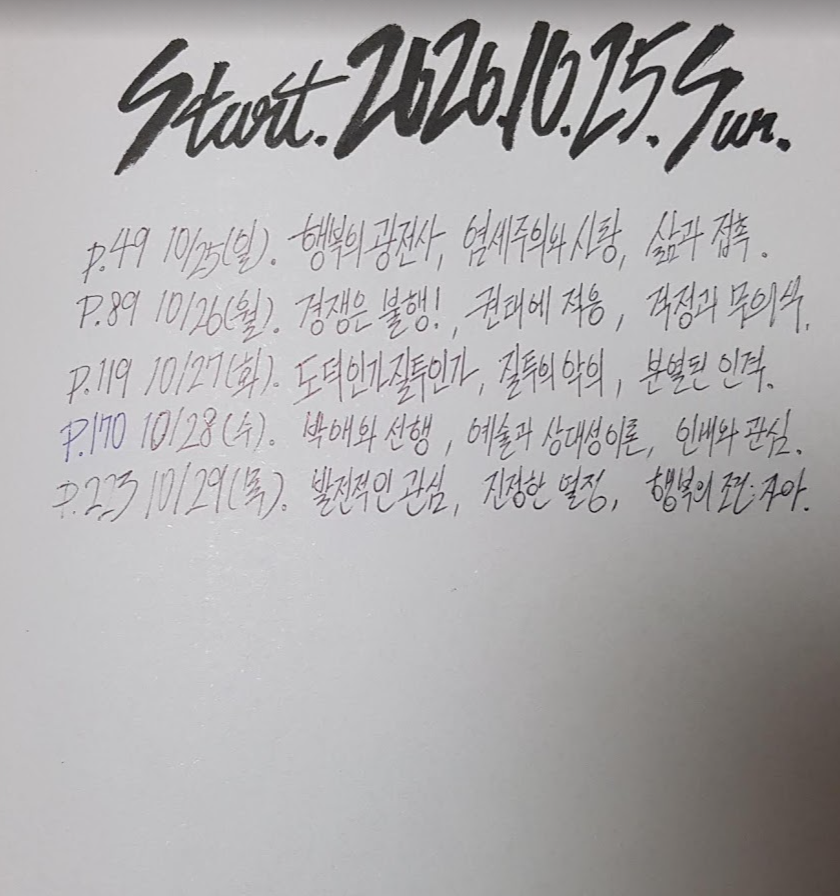 Start. 2020.10.25. Sun.
P.49 10/25(일). 행복의 광전사, 염세주의와 사랑, 삶과 접촉.
P.89 10/26(월). 경쟁은 불행!, 권태에 적응, 걱정과 무의식.
P.119 10/27(화). 도덕인가 질투인가, 질투의 악의, 분열된 인격.
P.170 10/28(수). 박애와 선행, 예술과 상대성이론, 인내와 관심.
P.223 10/29(목). 발전적인 관심, 진정한 열정, 행복의 조건:자아.